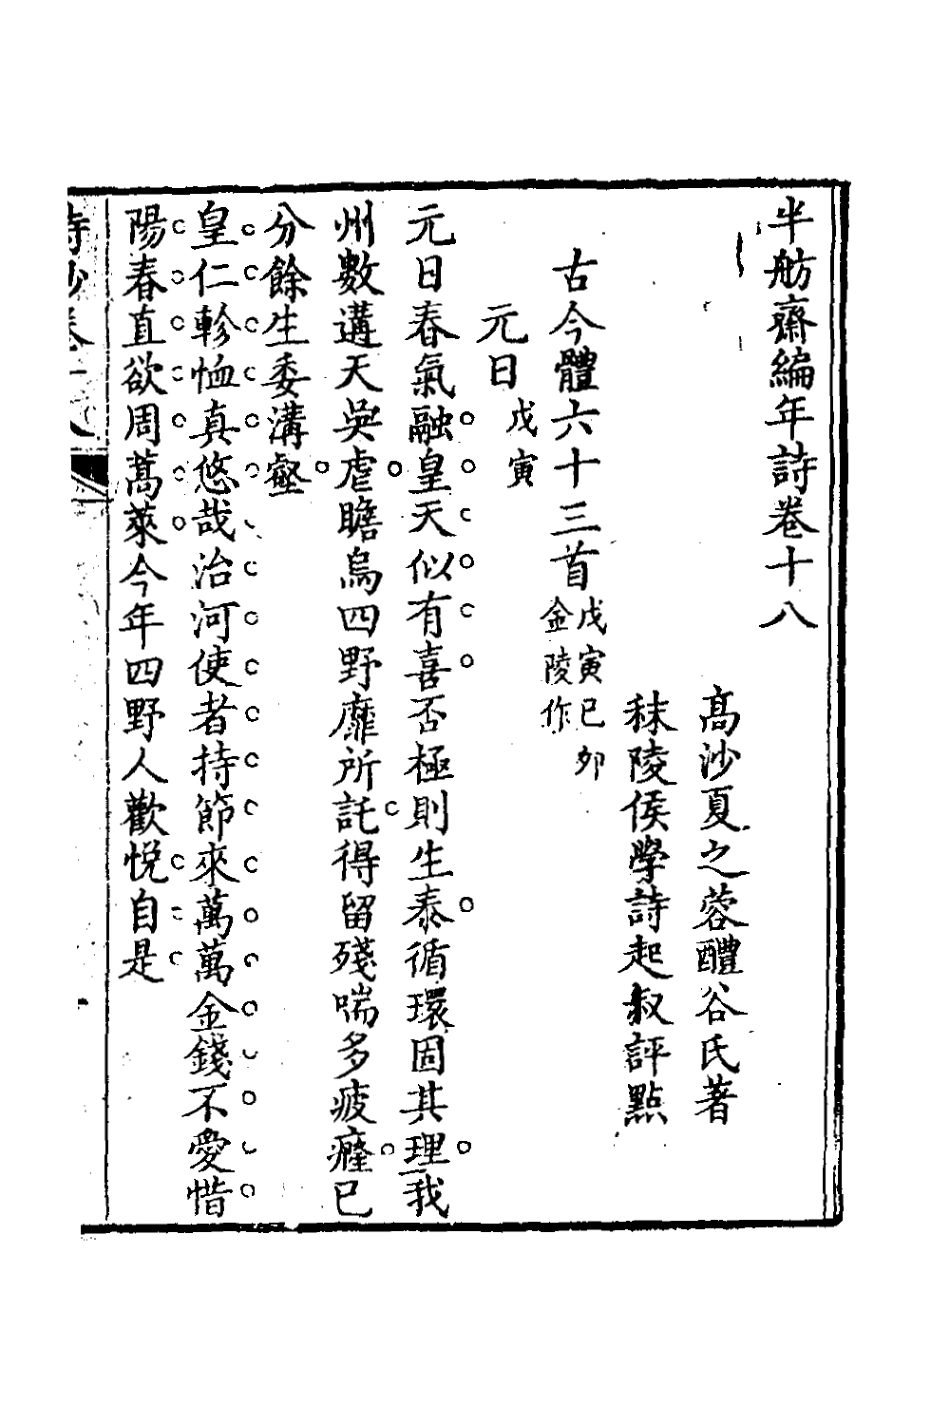 半舫齋編年詩卷十八
高沙夏之蓉醴谷氏著
秣陵侯學詩起叔評點
古今體六十三首戊寅己卯金陵作
元日戊寅
元日春氣融皇天似有喜否極則生泰循環固其理我
州數遘天吳虐瞻烏四野靡所託得留殘喘多疲癃已
分餘生委溝壑
皇仁軫恤真悠哉治河使者持節來萬萬金錢不愛惜
陽春直欲周蒿萊今年四野人歡悅自是